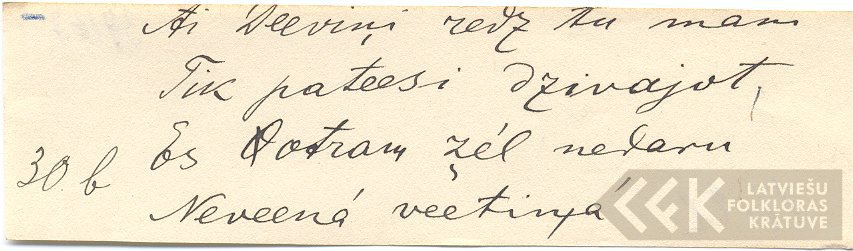 Ai Deeviņi redz tu mani
Tik pateesi dzivajot,
30. b Es ootram žēl nedaru
Neveená veetiņá
LATVIEŠU
FOLKLORAS
KRĀTUVE